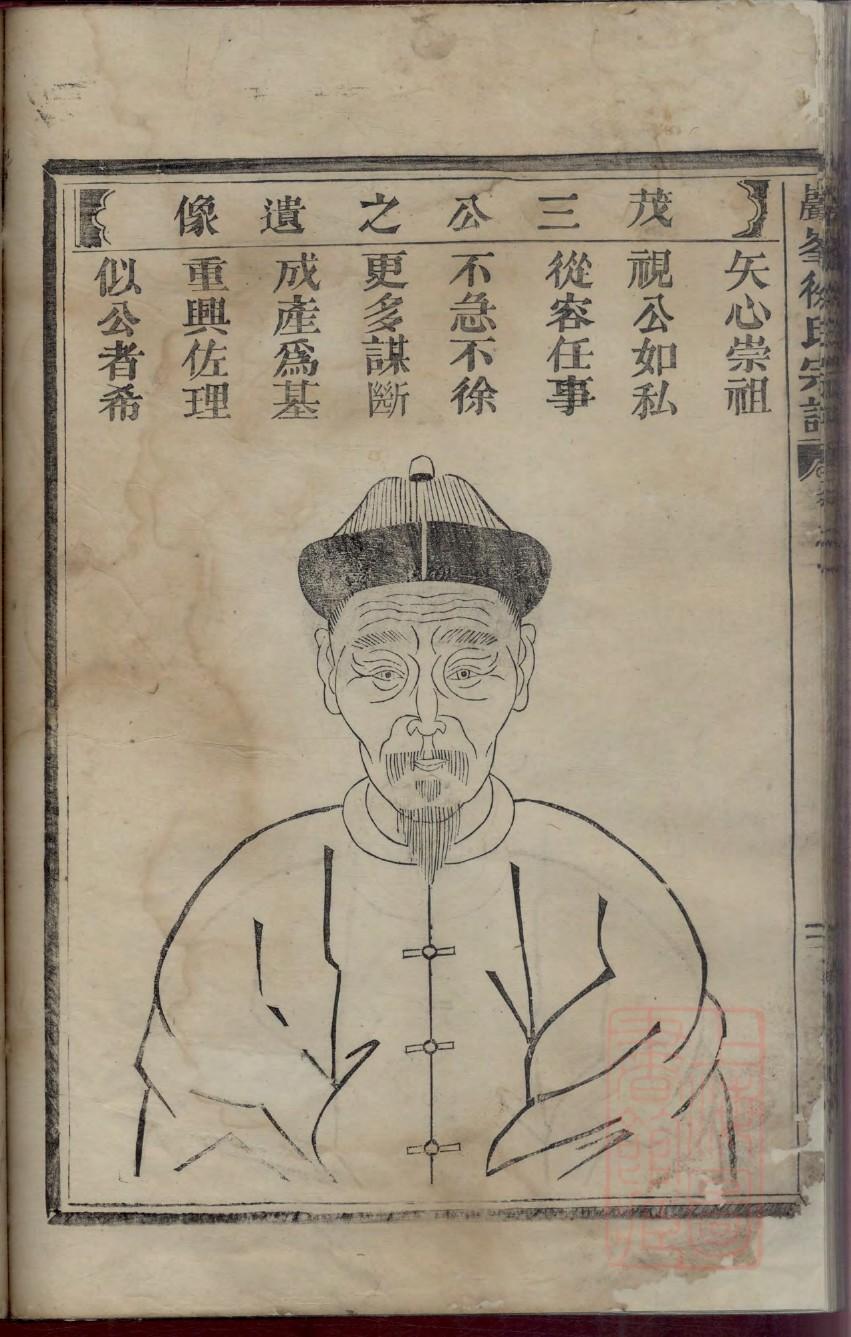 茂三公之遺像
矢心崇祖
視公如私
從容任事
不急不徐
更多謀斷
成產爲基
重興佐理
似公者希
徐氏宗譜